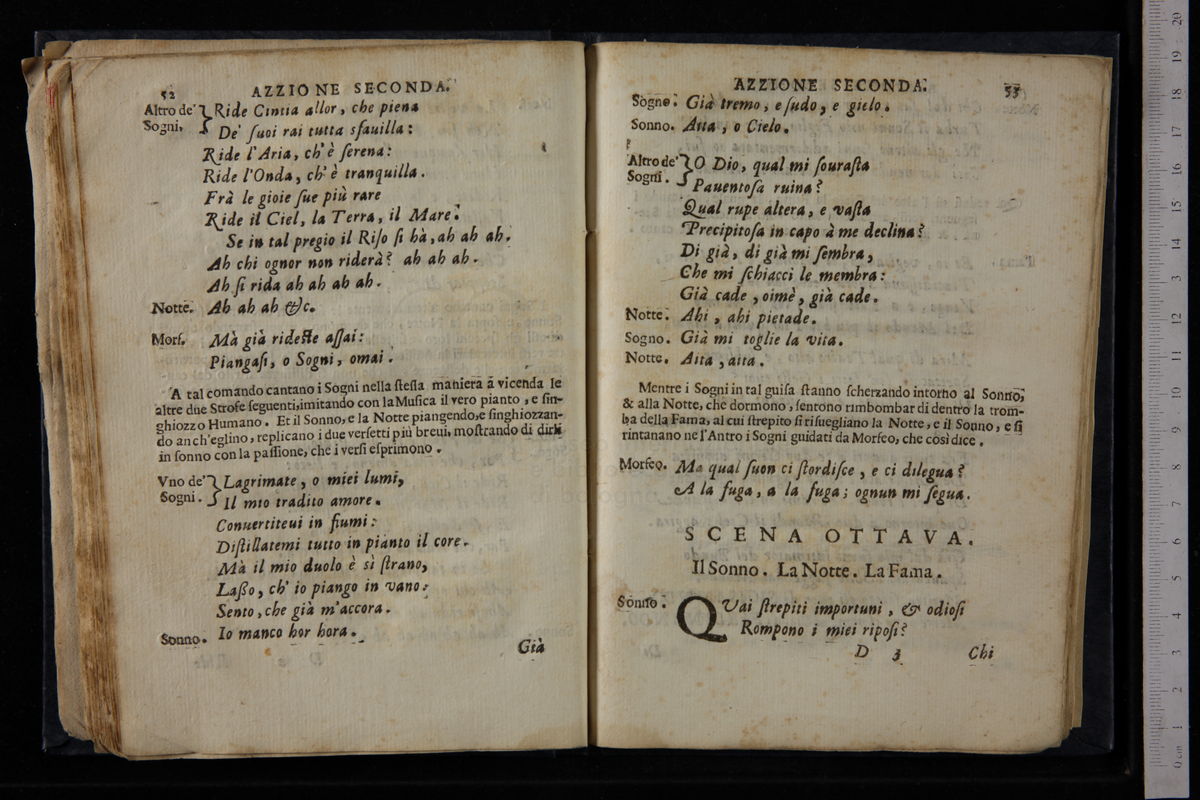 52
AZZIONE SECONDA.
Altro de' Sogni. Ride Cintia allor, che piena
De' suoi rai tutta sfauilla:
Ride l'Aria, ch'è serena:
Ride l'Onda, ch'è tranquilla.
Frà le gioie sue più rare
Ride il Ciel, la Terra, il Mare.
Se in tal pregio il Riso si hà, ah ah ah.
Ah chi ognor non riderà? ah ah ah.
Ah si rida ah ah ah ah.
Notte. Ah ah ah &c.
Morf. Mà già rideste assai:
Piangasi, o Sogni, omai.
A tal comando cantano i Sogni nella stessa maniera à vicenda le
altre due Strofe seguenti, imitando con la Musica il vero pianto, e sin-
ghiozzo Humano. Et il Sonno, e la Notte piangendo, e singhiozzan-
do anch'eglino, replicano i due versetti più breui, mostrando di dirli
in sonno con la passione, che i versi esprimono.
Vno de' Sogni. Lagrimate, o miei lumi,
Il mio tradito amore.
Conuertiteui in fiumi:
Distillatemi tutto in pianto il core.
Mà il mio duolo è sì strano,
Lasso, ch' io piango in vano:
Sento, che già m'accora.
Sonno. Io manco hor hora.
Già
AZZIONE SECONDA.
53
Sogno. Già tremo, e sudo, e gielo.
Sonno. Aita, o Cielo.
Altro de' Sogni. O Dio, qual mi sourasta
Pauentosa ruina?
Qual rupe altera, e vasta
Precipitosa in capo à me declina?
Di già, di già mi sembra,
Che mi schiacci le membra:
Già cade, oimè, già cade.
Notte. Ahi, ahi pietade.
Sogno. Già mi toglie la vita.
Notte. Aita, aita.
Mentre i Sogni in tal guisa stanno scherzando intorno al Sonno,
& alla Notte, che dormono, sentono rimbombar di dentro la trom-
ba della Fama, al cui strepito si risuegliano la Notte, e il Sonno, e si
rintanano ne l'Antro i Sogni guidati da Morfeo, che così dice.
Morfeo. Ma qual suon ci stordisce, e ci dilegua?
A la fuga, a la fuga; ognun mi segua.
SCENA OTTAVA.
Il Sonno. La Notte. La Fama.
Sonno. QVai strepiti importuni, & odiosi
Rompono i miei riposi?
D 3
Chi